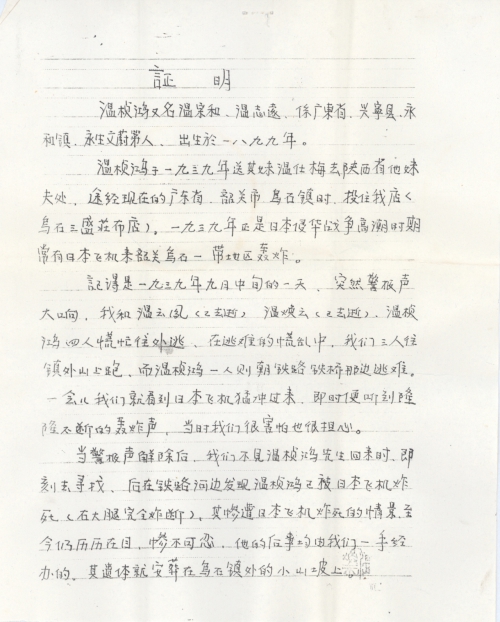 証 明
温桢鸿又名温宗和、温志遠、係广東省、兴寧县、永
和镇、永生文蔚第人、出生於一八九九年。
温桢鸿于一九三九年送其妹温仕梅去陕西省他妹
夫处、途经现在的广东省、韶关市、乌石镇时、投住我店(
乌石三盛莊布店)。一九三九年正是日本侵华战争高潮时期
常有日本飞机来韶关乌石一带地区轰炸。
記得是一九三九年九月中旬的一天、突然警报声
大响、我和温云凤(已去逝)温焕云(已去逝)、温桢
鸿四人慌忙往外逃、在逃难的慌乱中、我们三人往
镇外山上跑、而温桢鸿一人则朝铁路铁桥那边逃难。
一会儿我们就看到日本飞机猛冲过来、即时便听到隆
隆不断的轰炸声、当时我们很害怕也很担心。
当警报声解除后、我们不见温桢鸿先生回来时、即
刻去寻找、后在铁路河边发现温桢鸿已被日本飞机炸
死(右大腿完全炸断)、其惨遭日本飞机炸死的情景、至
今仍历历在目、惨不可忍、他的后事均由我们一手经
办的、其遗体就安葬在乌石镇外的小山坡上。